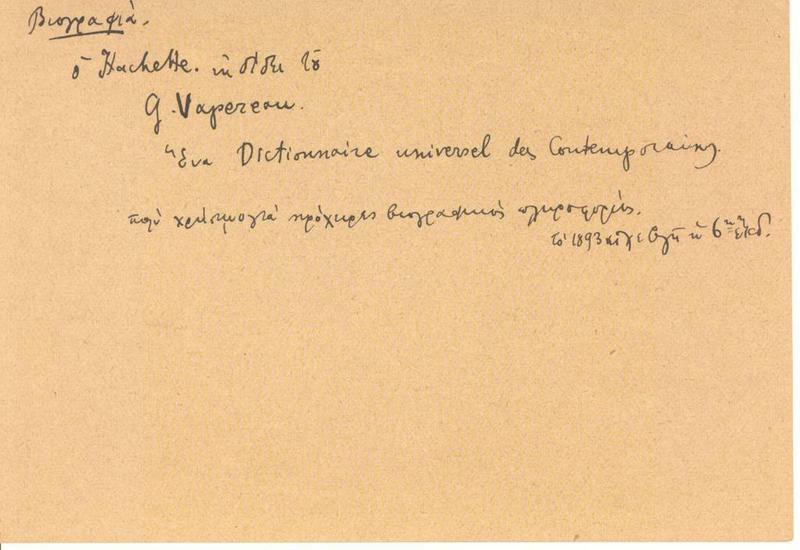 Βιογραφιά.
ὁ Hachette. ἐκδίδει τοῦ
G. Vapereau.
ἕνα Dictionnaire universel des Contemporains.
πολὺ χρήσιμο γιὰ πρόχειρες βιογραφικὲς πληροφορίες.
τὸ 1893 εἶχε βγῆ ἡ 6η ἔκδ.